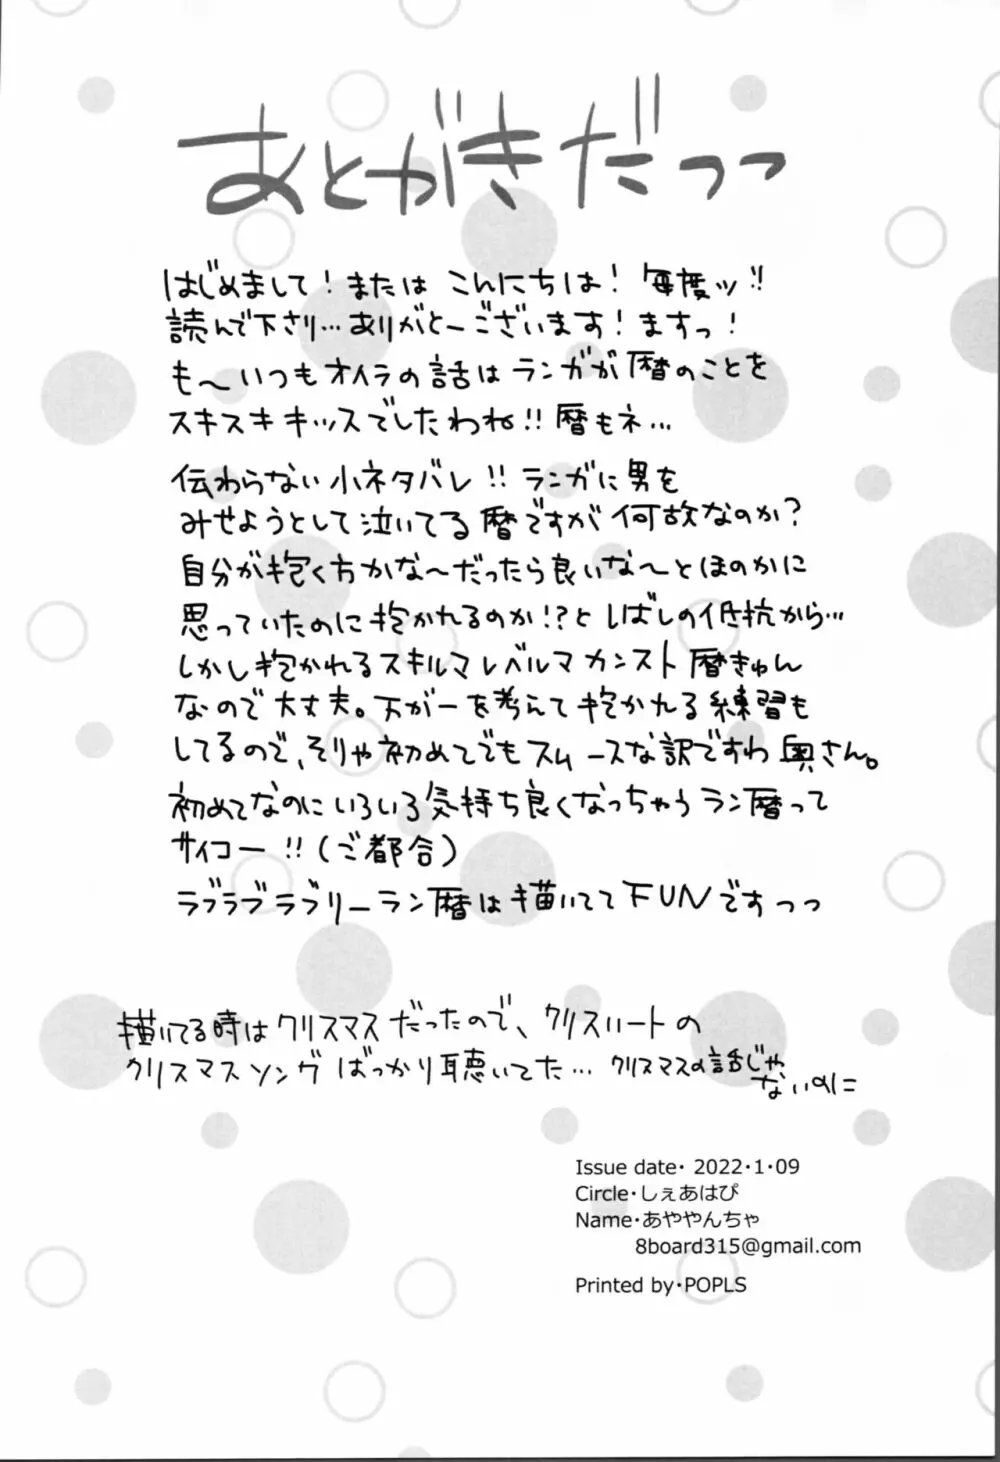 あとがきだっっ
はじめまして！または こんにちは！ 毎度ッ!!
読んで下さり…ありがとーございます！ますっ！
も〜いつもオイラの話は ランガが 暦のことを
スキスキキッスでしたわね!! 暦もネ…
伝わらない小ネタバレ!! ランガに男を
みせようとして泣いてる 暦ですが 何故なのか？
自分が抱く方かな〜だったら良いな〜とほのかに
思っていたのに抱かれるのか!?と しばしの抵抗から…
しかし抱かれるスキルマレベルマ カンスト 暦きゅん
なので大丈夫。万が一を考えて抱かれる練習も
してるので、そりゃ初めてでもスムースな訳ですわ 奥さん。
初めてなのにいろいろ気持ち良くなっちゃうラン暦って
サイコー!!（ご都合）
ラブラブラブリーラン暦は描いてて FUNですっっ
描いてる時はクリスマスだったので、クリスハートの
クリスマスソングばっかり聴いてた… クリスマスの話じゃ
ないのに
Issue date・ 2022・1・09
Circle・しぇあはぴ
Name・あややんちゃ
8board315@gmail.com
Printed by・POPLS